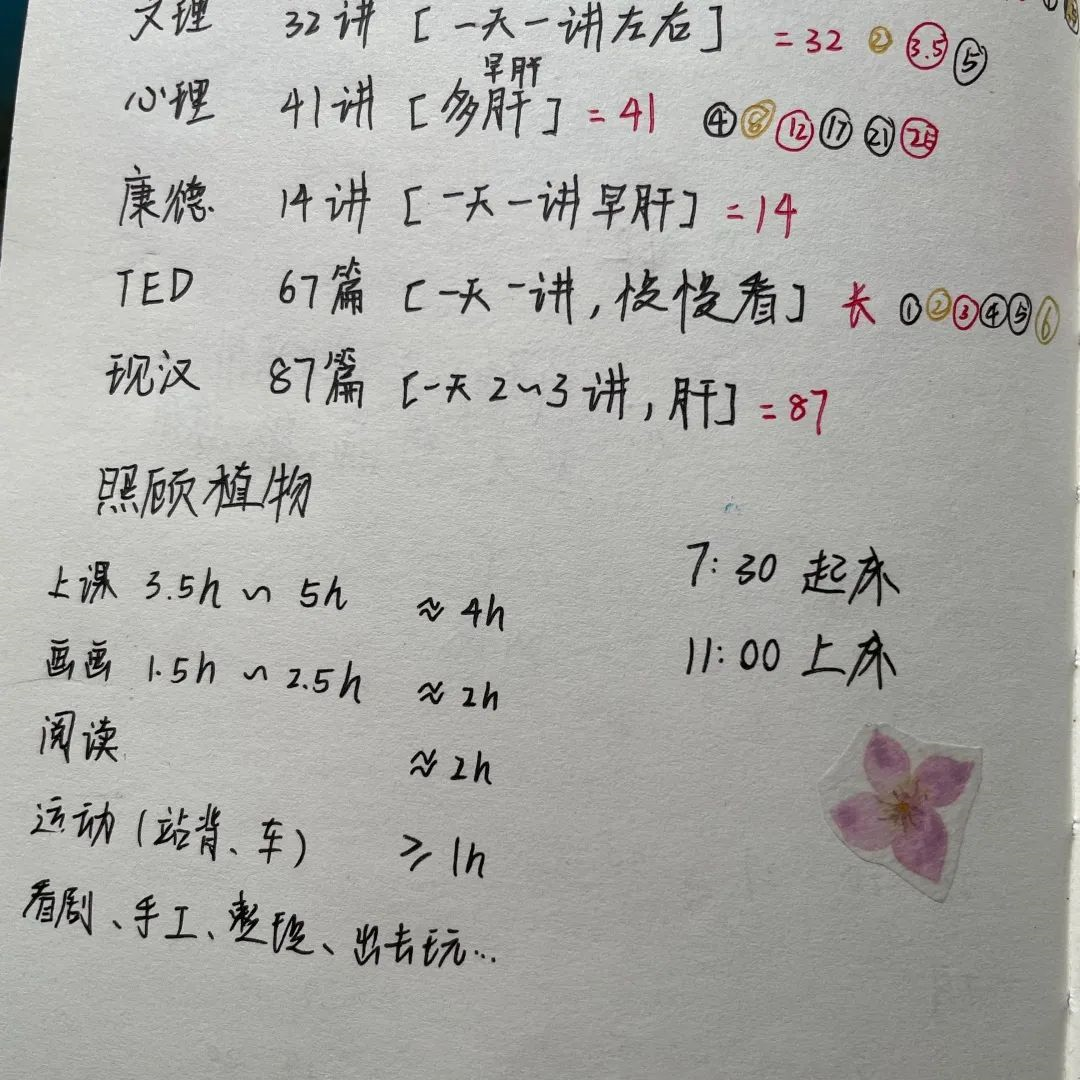 文理 32讲 [一天一讲左右] =32 ② 3.5 ⑤
早肝
心理 41讲 [多肝] =41 ④ ⑧ ⑫ ⑰ ㉑ ㉕
康德 14讲 [一天一讲早肝] =14
TED 67篇 [一天一讲,慢慢看] 长 ① ② ③ ④ ⑤ ⑥
现汉 87篇 [一天2~3讲,肝] =87
照顾植物
7:30 起床
上课 3.5h ~ 5h ≈4h
11:00 上床
画画 1.5h ~ 2.5h ≈2h
阅读 ≈2h
运动(站背、车) ≥1h
看剧、手工、整理、出去玩…